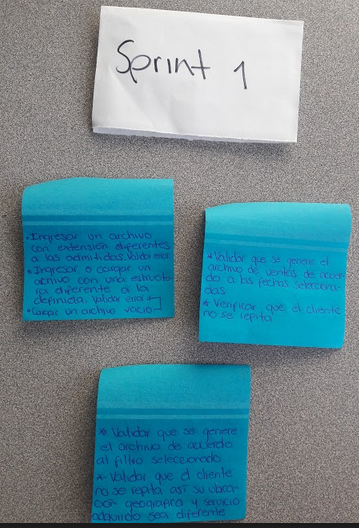 Sprint 1
* Ingresar un archivo
con extensión diferentes
a las admitidas. Validar error
* Ingresar o cargar un
archivo con una estructu-
ra diferente a la
definida. Validar error
* Cargar un archivo vacío
* Validar que se genere el
archivo de ventas de acuer-
do a las fechas selecciona-
das
* Verificar que el cliente
no se repita
* Validar que se genere
el archivo de acuerdo
al filtro seleccionado.
* Validar que el cliente
no se repita así su ubica-
ción geográfica y servicio
adquirido sea diferente